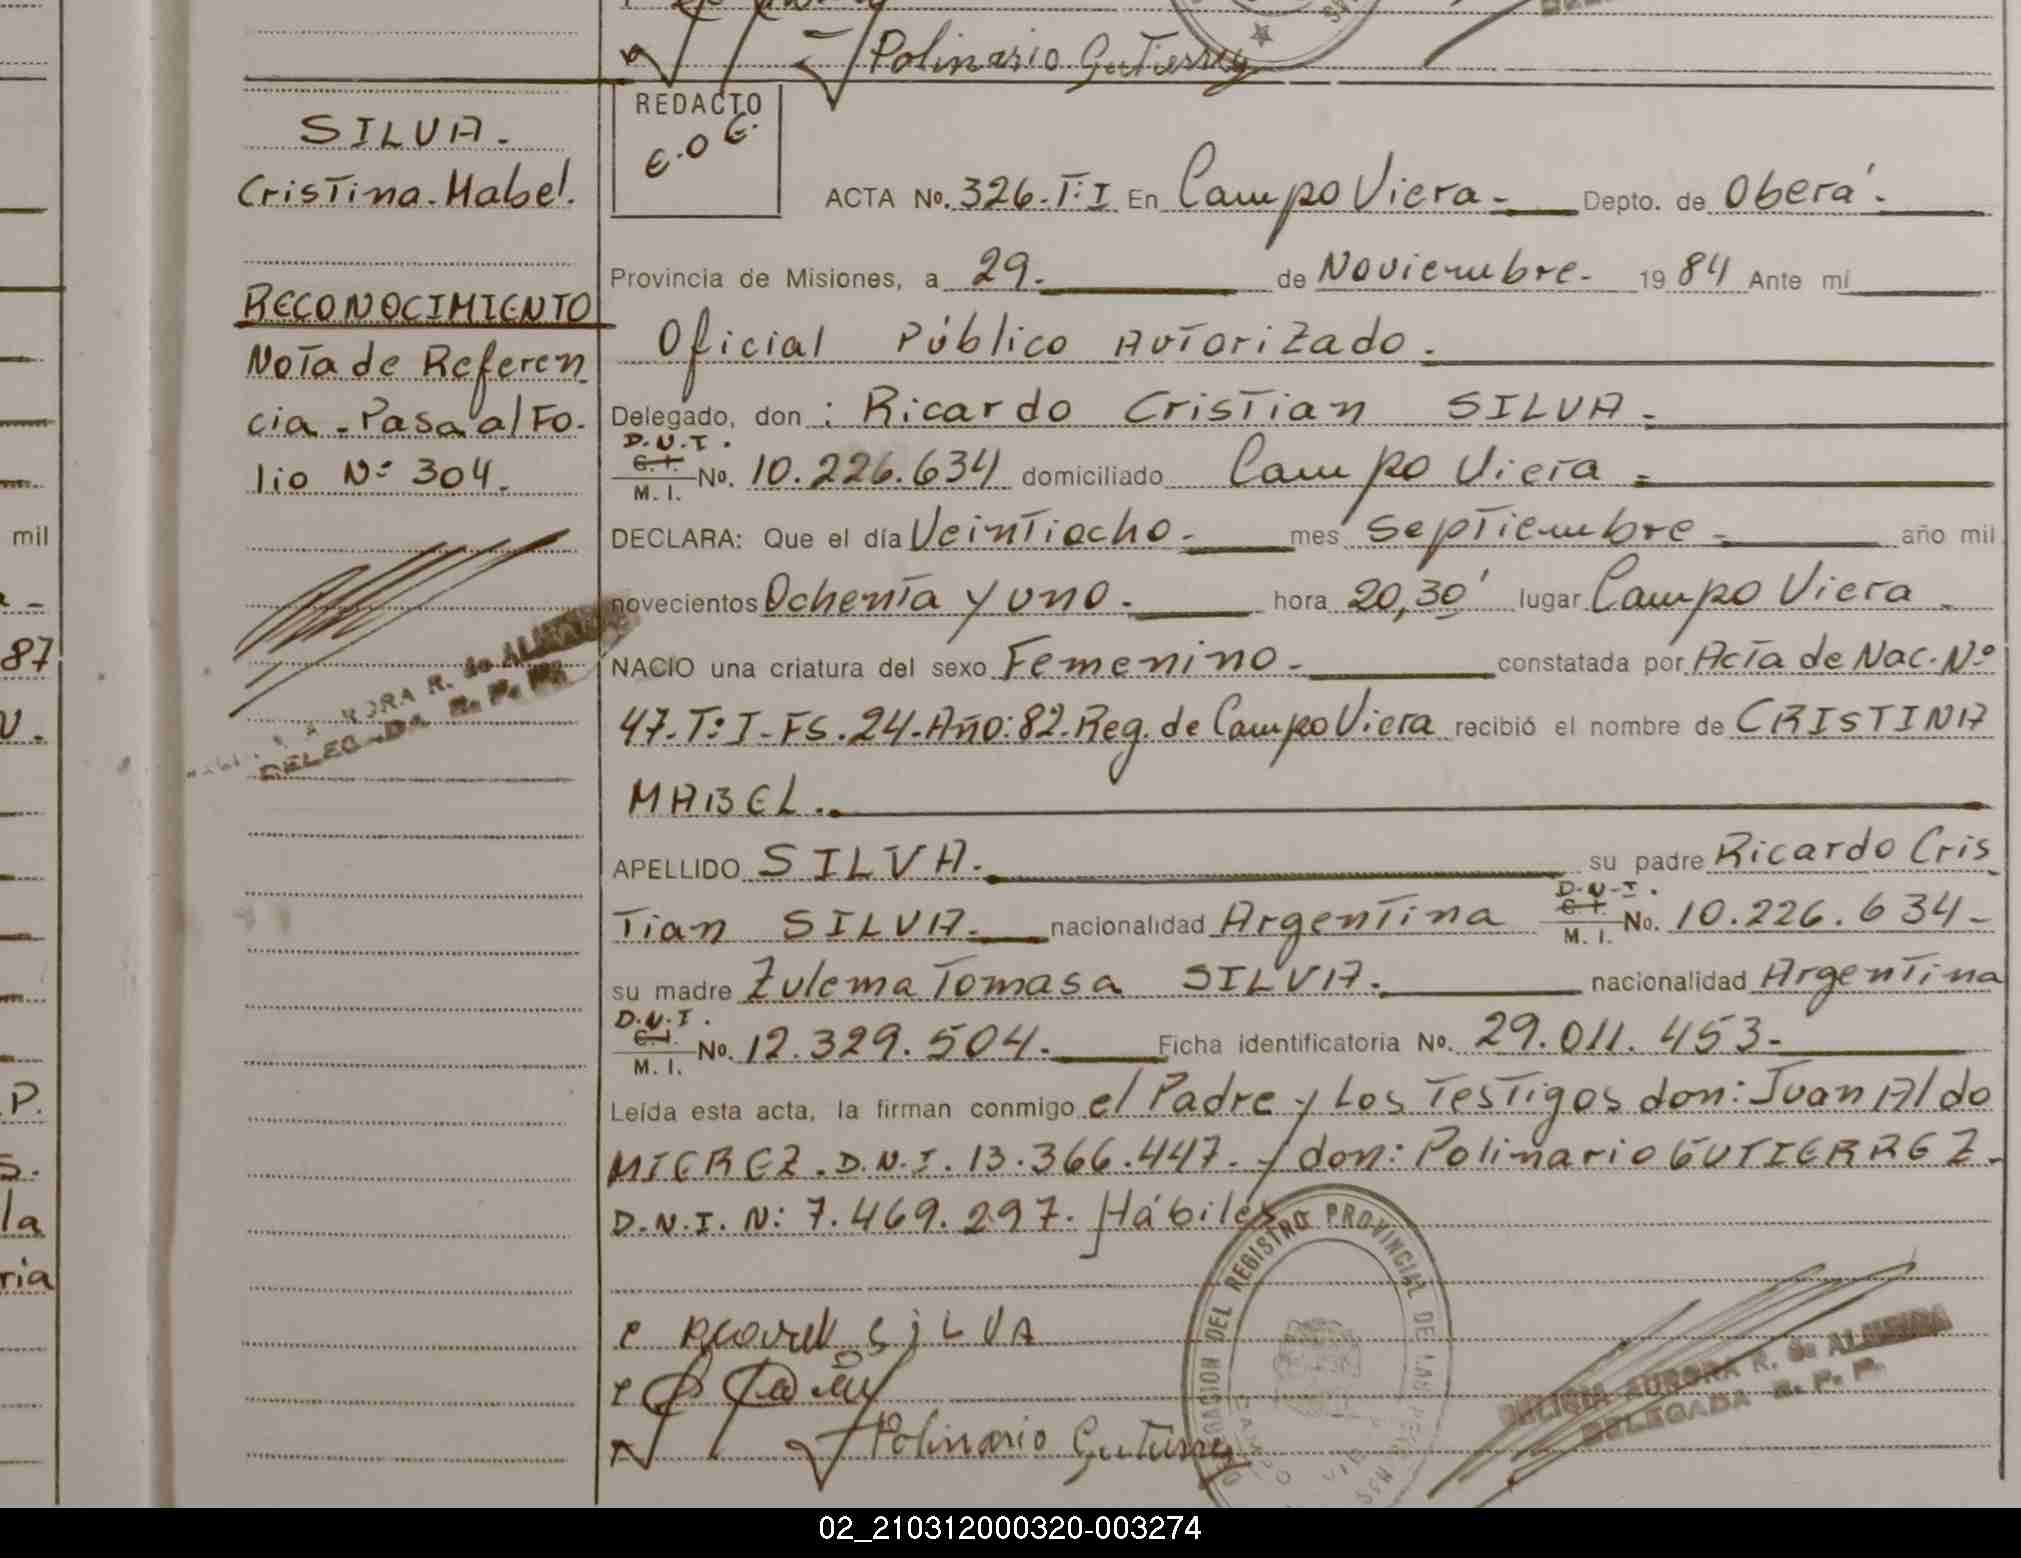 Polinario Gutierrez
SILVA.
Cristina. Mabel.
RECONOCIMIENTO
Nota de Referen
cia. Pasa al Fo.
lio Nº 304.
REDACTO
ACTA No. 326. Tº I En Campo Viera. Depto. de Oberá.
Provincia de Misiones, a 29. de Noviembre. 1984 Ante mí
Oficial Público Autorizado.
Delegado, don: Ricardo Cristian SILVA.
D.N.I.
C.I.
M. I. No. 10.226.634 domiciliado Campo Viera.
DECLARA: Que el día Veintiocho. mes Septiembre. año mil
novecientos Ochenta y uno. hora 20,30' lugar Campo Viera.
NACIO una criatura del sexo Femenino. constatada por Acta de Nac. Nº
47. Tº I. FS. 24. Año: 82. Reg. de Campo Viera recibió el nombre de CRISTINA
MABEL.
APELLIDO SILVA. su padre Ricardo Cris
D.N.I.
C.I.
M. I.
tian SILVA. nacionalidad Argentina No. 10.226.634.
su madre Zulema Tomasa SILVA. nacionalidad Argentina
D.N.I.
C.I.
M. I. No. 12.329.504. Ficha identificatoria No. 29.011.453.
Leída esta acta, la firman conmigo el Padre y Los Testigos don: Juan Aldo
MIEREZ. D.N.I. 13.366.447. y don: Polinario GUTIERREZ.
D.N.I. Nº 7.469.297. Hábiles
SiLVA
Polinario Gutierrez
DEL REGISTRO PROVINCIAL DE LAS PERSONAS
AURORA R. de ALMEIDA
DELEGADA R. P. P.
R. de ALMEIDA
DELEGADA R. P. P.
mil
87
P.
la
ria
02_210312000320-003274